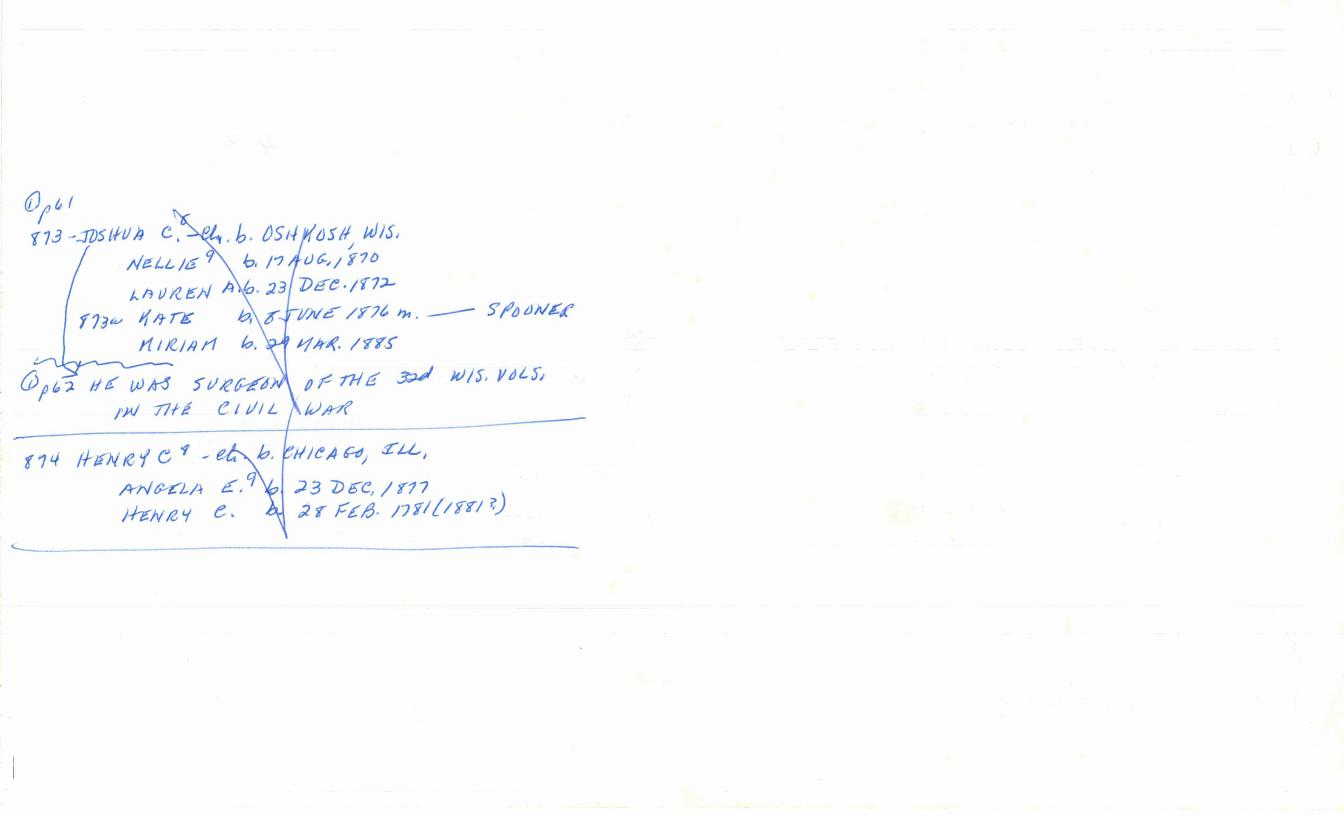 ① p61
873-JOSHUA C.⁸ - ch. b. OSHKOSH, WIS.
NELLIE⁹ b. 17 AUG, 1870
LAUREN A. b. 23 DEC. 1872
873a KATE b. 8 JUNE 1876 m. — SPOONER
MIRIAM b. 29 MAR. 1885
① p62 HE WAS SURGEON OF THE 32d WIS. VOLS.
IN THE CIVIL WAR
874 HENRY C⁸ - ch. b. CHICAGO, ILL.
ANGELA E.⁹ b. 23 DEC, 1877
HENRY C. b. 28 FEB. 1781(1881?)